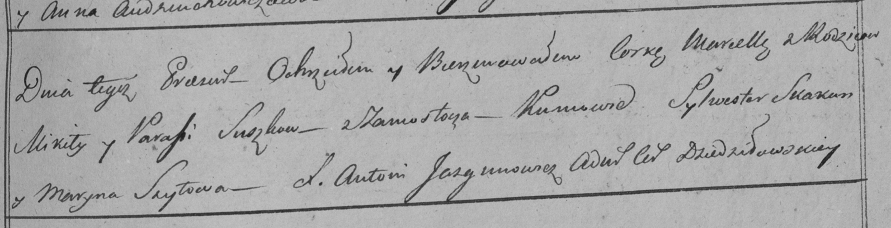 y Anna
Dnia tegoż Ochrzciłem y Bierzmowałem Corkę Marcellę z Rodzicow
Mikity y Parasi Suszkow z Zamostocza Kumowie Sylwester Skakun
y Maryna Szyłowa X. Antoni Jazgunowicz Dziedziłowskiey